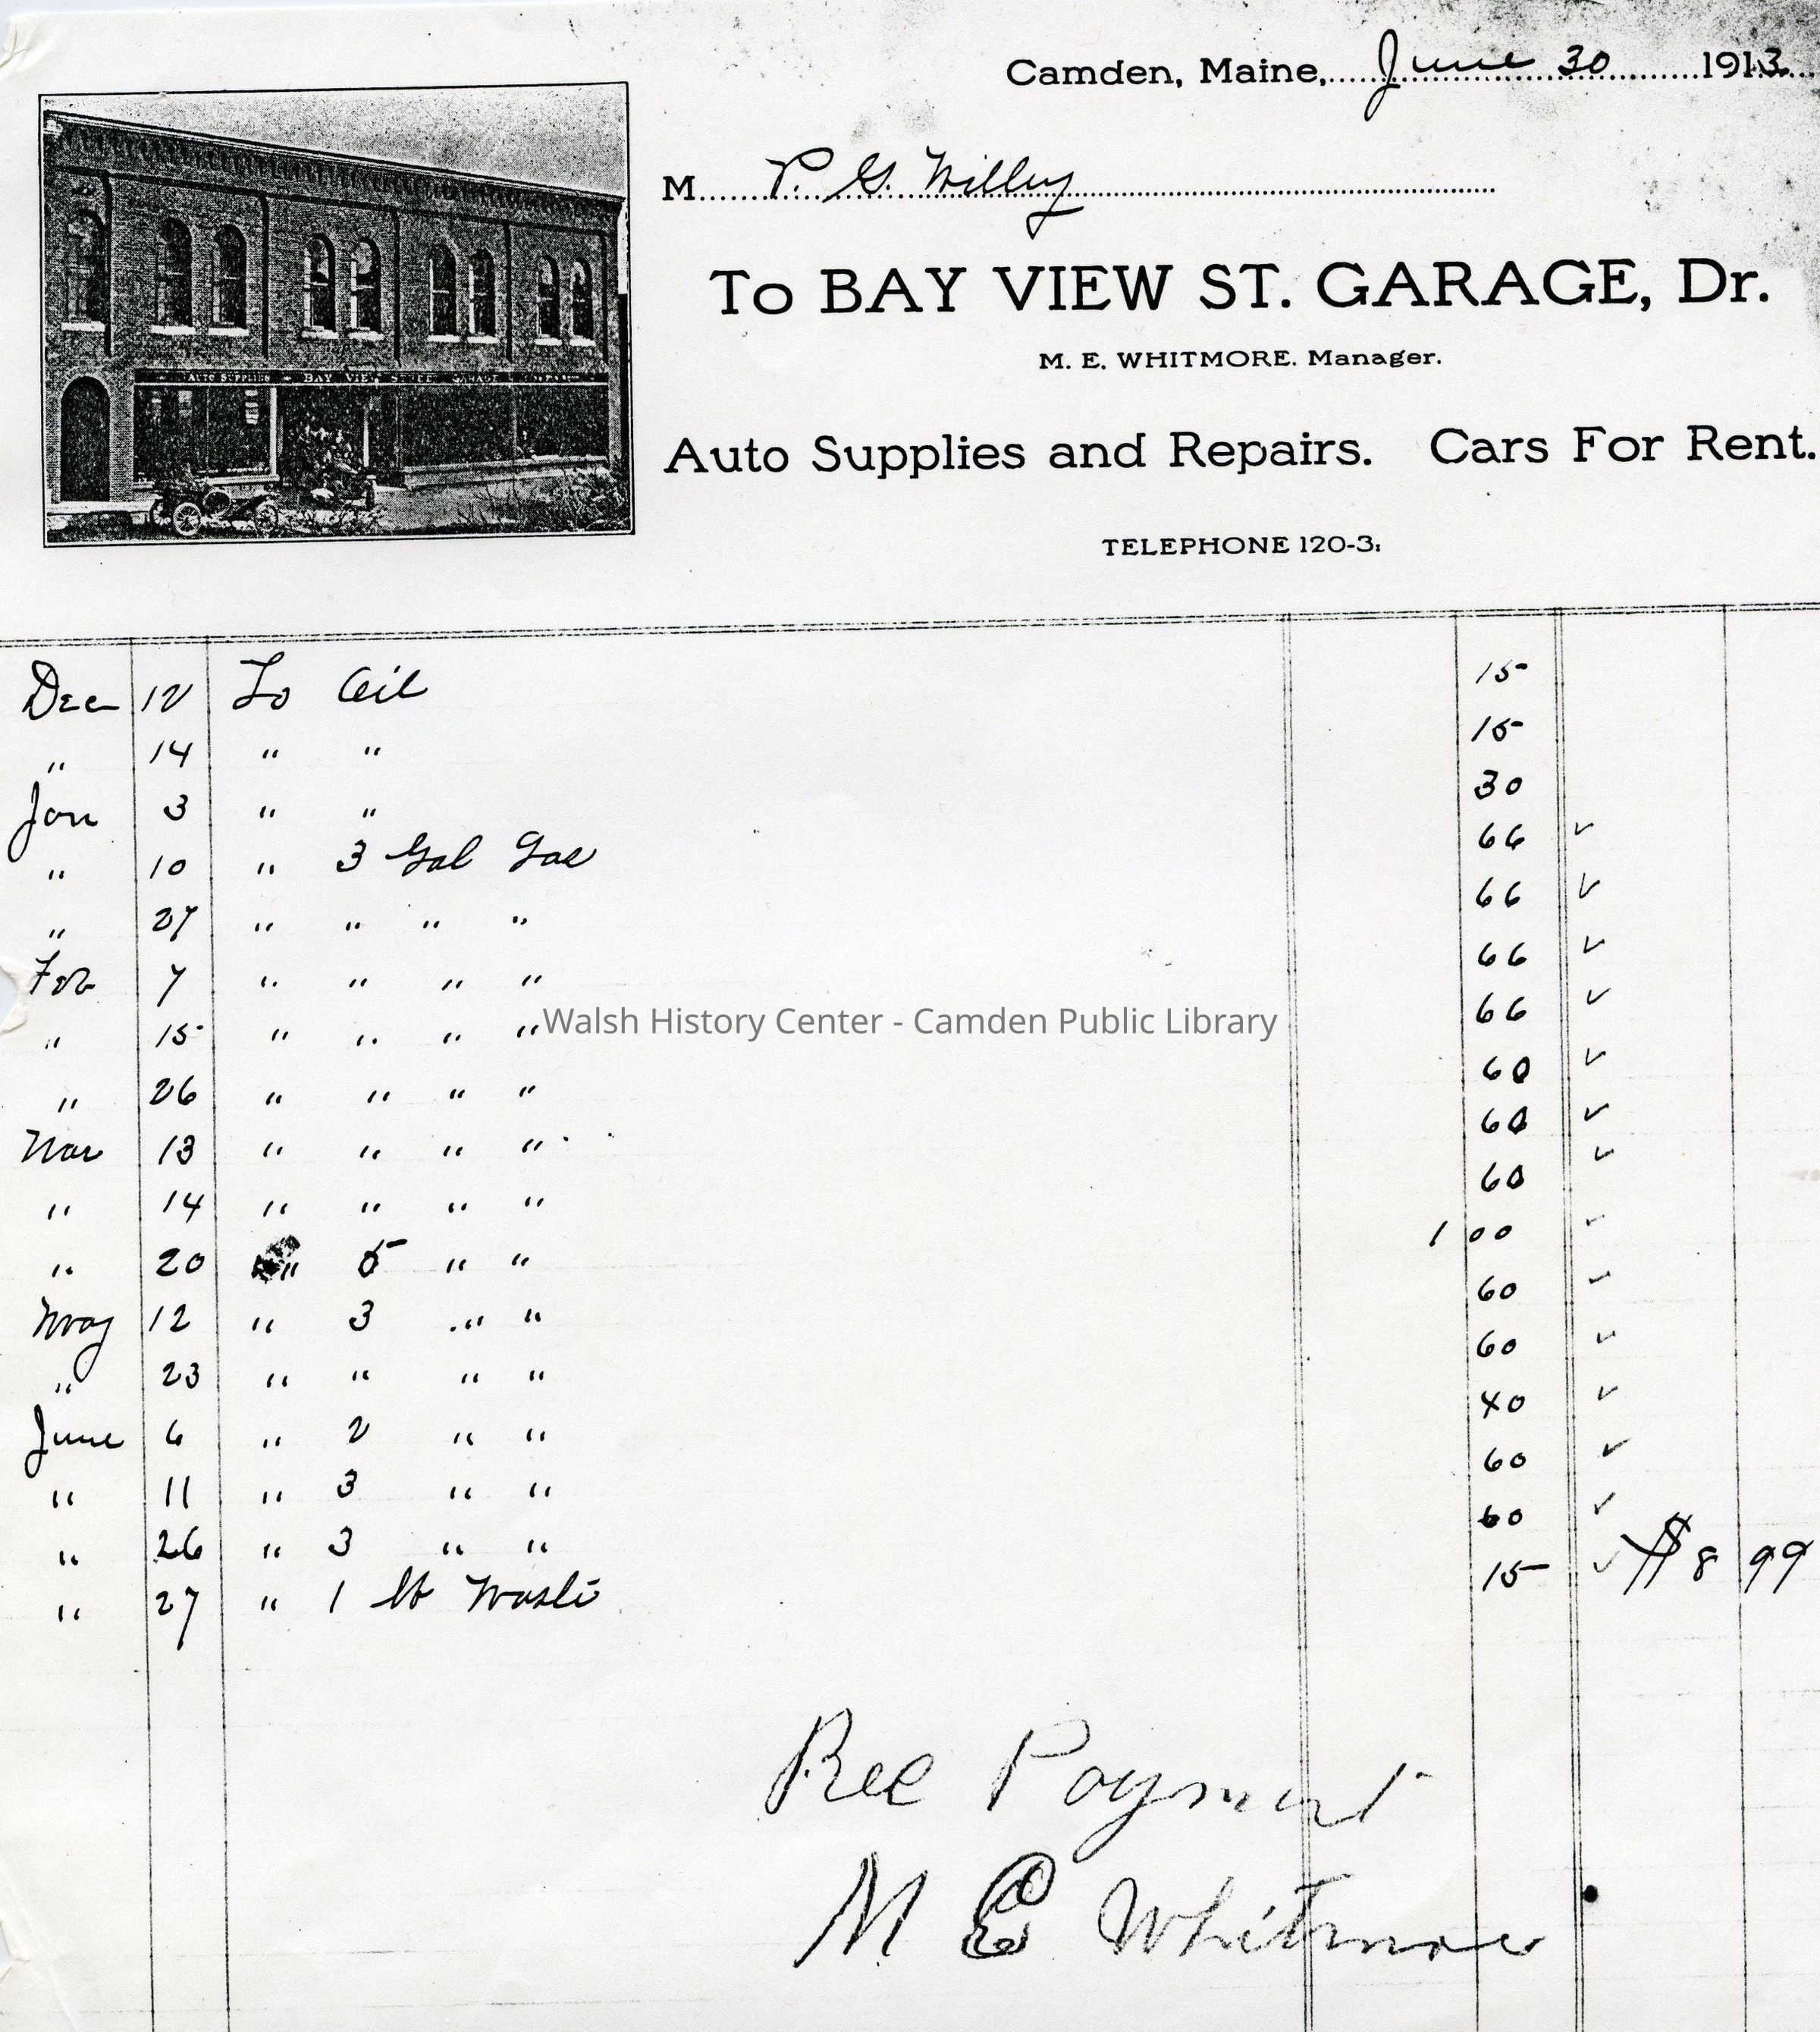 Camden, Maine, June 30 1913
M P. G. Willey
To BAY VIEW ST. GARAGE, Dr.
M. E. WHITMORE. Manager.
AUTO SUPPLIES BAY VIEW STREET GARAGE
Auto Supplies and Repairs. Cars For Rent.
TELEPHONE 120-3.
Dec 12 To Oil 15
" 14 " " 15
Jan 3 " " 30
" 10 " 3 Gal Gas 66 ✓
" 27 " " " " 66 ✓
Feb 7 " " " " 66 ✓
" 15 " " " " 66 ✓
" 26 " " " " 60 ✓
Mar 13 " " " " 60 ✓
" 14 " " " " 60 ✓
" 20 " 5 " " 1 00 ✓
May 12 " 3 " " 60 ✓
" 23 " " " " 60 ✓
June 6 " 2 " " 40 ✓
" 11 " 3 " " 60 ✓
" 26 " 3 " " 60 ✓
" 27 " 1 lb Waste 15 ✓ $8 99
Rec Payment
M E Whitmore
Walsh History Center - Camden Public Library